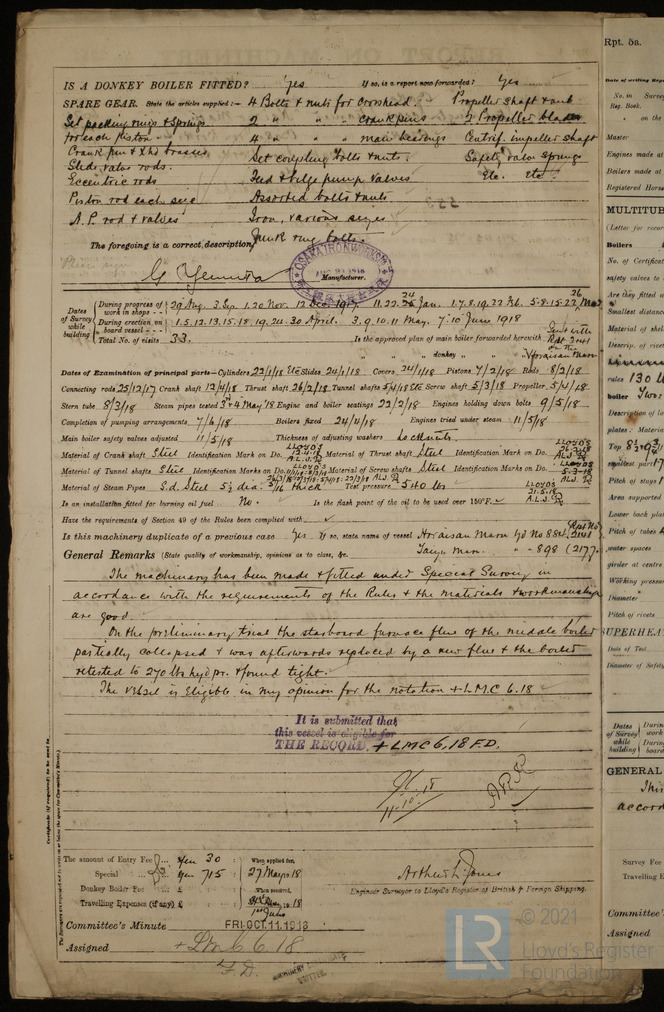 IS A DONKEY BOILER FITTED? Yes If so, is a report now forwarded? Yes
SPARE GEAR. State the articles supplied:— 4 Bolts & nuts for Crosshead. Propeller shaft & nut
Set packing rings & springs 2 " " " crank pins 2 Propeller blades
for each piston 4 " " " main bearings Centrif. impeller shaft
Crank pin & Xhd brasses Set coupling bolts & nuts. Safety valve springs
Slide valve rods. Feed & bilge pump valves Etc. Etc.
Eccentric rods Assorted bolts & nuts
Piston rod each size Iron, various sizes
A.P. rod & valves Junk ring bolts.
The foregoing is a correct description,
Manufacturer.
OSAKA IRON WORKS
Dates of Survey while building
During progress of work in shops - - 29 Aug. 3 Sep. 1.20 Nov. 12 Dec. 1917. 11.22.24 Jan. 1.7.8.19.22 Feb. 5.8.15.22.26 Mar
During erection on board vessel - - - 1.5.12.13.15.18.19.24.30 April. 3.9.10.11 May. 7.10 June 1918
Total No. of visits 33. Is the approved plan of main boiler forwarded herewith
" " " donkey " " "
Dates of Examination of principal parts—Cylinders 22/1/18 Etc Slides 24/1/18 Covers 24/1/18 Pistons 7/2/18 Rods 8/2/18
Connecting rods 25/12/17 Crank shaft 12/4/18 Thrust shaft 26/2/18 Tunnel shafts 5/4/18 Etc Screw shaft 5/3/18 Propeller 5/4/18
Stern tube 8/3/18 Steam pipes tested 3rd & 4th May '18 Engine and boiler seatings 22/2/18 Engines holding down bolts 9/5/18
Completion of pumping arrangements 7/6/18 Boilers fixed 24/4/18 Engines tried under steam 11/5/18
Main boiler safety valves adjusted 11/5/18 Thickness of adjusting washers
Material of Crank shaft Steel Identification Mark on Do. LLOYDS Material of Thrust shaft Steel Identification Mark on Do. LLOYDS
Material of Tunnel shafts Steel Identification Marks on Do. LLOYDS Material of Screw shafts Steel Identification Marks on Do. LLOYDS 5.3.18
Material of Steam Pipes S.d. Steel 5½ dia. 5/16 thick Test pressure 540 lbs LLOYDS 21.5.18 A.L.J.
Is an installation fitted for burning oil fuel No. Is the flash point of the oil to be used over 150°F.
Have the requirements of Section 49 of the Rules been complied with
Is this machinery duplicate of a previous case Yes If so, state name of vessel Horaisan Maru Yd No 884
" - 898 (2177
General Remarks (State quality of workmanship, opinions as to class, &c.
The machinery has been made & fitted under Special Survey in
accordance with the requirements of the Rules & the materials & workmanship
are good.
On the preliminary trial the starboard furnace flue of the middle boiler
partially collapsed & was afterwards replaced by a new flue & the boiler
retested to 270 lbs hyd pr. & found tight.
The vessel is Eligible in my opinion for the notation + LMC 6.18
It is submitted that
this vessel is eligible for
THE RECORD. + LMC 6.18 F.D.
The amount of Entry Fee Yen 30 When applied for,
Special Yen 715 27 May 18
Donkey Boiler Fee £ When received,
Travelling Expenses (if any) £
Arthur L. Jones
Engineer Surveyor to Lloyd's Register of British & Foreign Shipping.
Committee's Minute FRI. OCT. 11. 1918
Assigned + LMC 6.18
F.D.
MACHINERY CERTIFICATE
WRITTEN
Certificate (if required) to be sent to
Rpt. 5a.
Date of writing Rep
No. in Survey
Reg. Book.
on the
Master
Engines made at
Boilers made at
Registered Horse
MULTITUB
(Letter for recor
Boilers
No. of Certificat
safety valves to
Are they fitted
Smallest distanc
Material of shel
Descrip. of rivet
rules 130
boiler
Description of lo
plates: Materia
Top
smallest part
Pitch of stays
Area supported
Lower back plat
Pitch of tubes
water spaces
girder at centre
Working pressur
Diameter
Pitch of rivets
SUPERHEA
Date of Test
Diameter of Safety
Dates of Survey while building
During work
During board
GENERAL
accord
Survey Fee
Travelling E
Committee'
Assigned
LR
© 2021
Lloyd's Register
Foundation